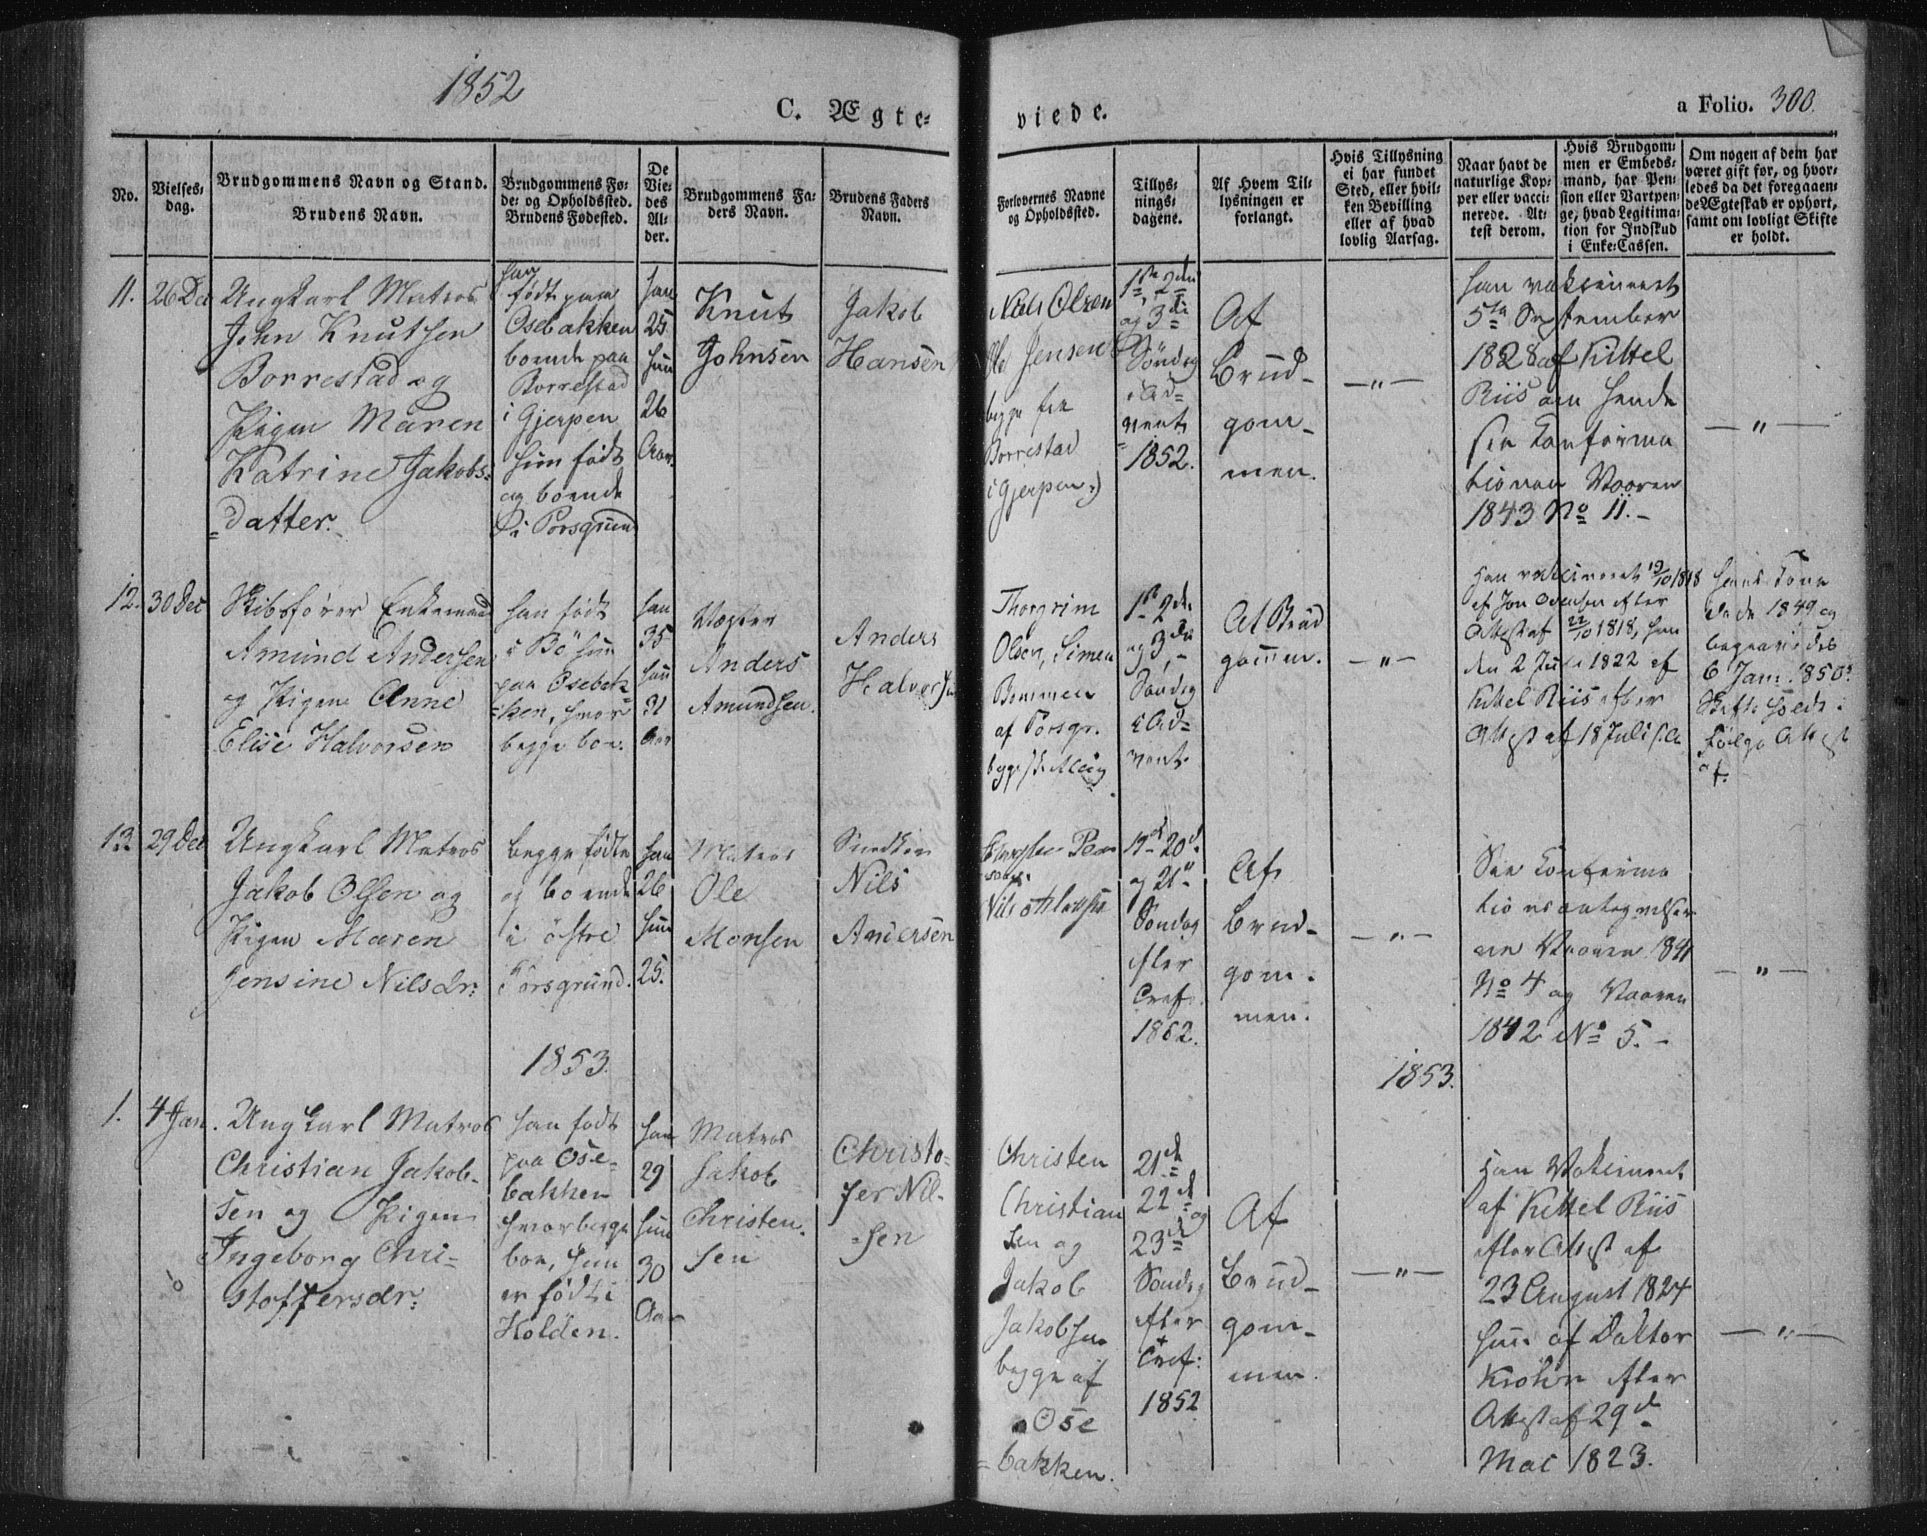 1852
C. Ægte=
viede.
a Folio. 300.
No.
Vielses=
dag.
Brudgommens Navn og Stand.
Brudens Navn.
Brudgommens Fø=
de= og Opholdssted.
Brudens Fødested.
De
Vie=
des
Al=
der.
Brudgommens Fa=
ders Navn.
Brudens Faders
Navn.
Forlovernes Navne
og Opholdssted.
Tillys=
nings=
dagene.
Af Hvem Til=
lysningen er
forlangt.
Hvis Tillysning
ei har fundet
Sted, eller hvil=
ken Bevilling
eller af hvad
lovlig Aarsag.
Naar havt de
naturlige Kop=
per eller vacci=
nerede. At=
test derom.
Hvis Brudgom=
men er Embeds=
mand, har Pen=
sion eller Vartpen=
ge, hvad Legitima=
tion for Indskud
i Enke=Cassen.
Om nogen af dem har
været gift før, og hvor=
ledes da det foregaaen=
de Ægteskab er ophørt,
samt om lovligt Skifte
er holdt.
11.
26 Dec
Ungkarl Matros
John Knutsen
Borrestad og
Pigen Maren
Katrine Jakobs=
=datter.
han
født paa
Osebakken
boende paa
Borrestad
i Gjerpen
hun født
og boende
i Porsgrund
han
25
hun
26
Aar.
Knut
Johnsen
Jakob
Hansen
Niels Olsen
Ole Jensen
begge fra
Borrestad
i Gjerpen
1ste 2den
og 3de
Søndag
i Ad=
vent
1852.
Af
Brud-
gom-
men.
—„—
han vaksineret
5te September
1828 af Kittel
Riis om hende
see Konfirma
tionen Vaaren
1843 No 11.-
—„—
12.
30 Dec
Skibsfører Enkemand
Amund Andersen
og Pigen Anne
Elise Halvorsen
han født
i Bø hun
paa Osebak
=ken, hvor
begge boe.
han
35
hun
31
Aar
Anders
Amundsen.
Anders
Halvorsen
Thorgrim
Olsen, Simen
af Porsgr.
1ste 2den
og 3die
Søndag
i Ad=
vent.
Af Brud
gommen.
—„—
Han vaksineret 19/10 1818
af Jon Ovensen efter
Attest af 22/10 1818, hun
den 2 Juli 1822 af
Kittel Riis efter
Attest af 18 Juli s.A.
hans Kone
døde 1849 og
begravedes
6 Jan. 1850.
Skifte holdt i
følge Attest
af.
13.
29 Dec
Ungkarl Matros
Jakob Olsen og
Pigen Maren
Jensine Nilsdr:
begge fødte
og boende
i østre
Porsgrund.
han
26
hun
25.
Matros
Ole
Monsen
Nils
Andersen
19de 20de
og 21de
Søndag
efter
Tref.
1852.
Af
Brud-
gom-
men.
—„—
See Konfirma
tionsantegnelser
om Vaaren 1841
No 4 og Vaaren
1842 No 5.-
—„—
1853.
1853.
1.
4 Jan.
Ungkarl Matros
Christian Jakob-
sen og Pigen
Ingeborg Chri-
stoffersdr:
han født
paa Ose-
bakken
hvor begge
boe, hun
er født i
Holden.
han
29
hun
30
Aar
Matros
Jakob
Christen-
sen
Christo-
fer Nil-
-sen
Christen
Christian
sen og
Jakob
Jakobsen
begge af
Ose
=bakken.
21de
22de og
23de
Søndag
efter
Tref:
1852
Af
Brud-
gom-
men.
—„—
Han Vaksineret
af Kittel Riis
efter Attest af
23 August 1824
hun af Doktor
Krohn efter
Attest af 29de
Mai 1823.
—„—